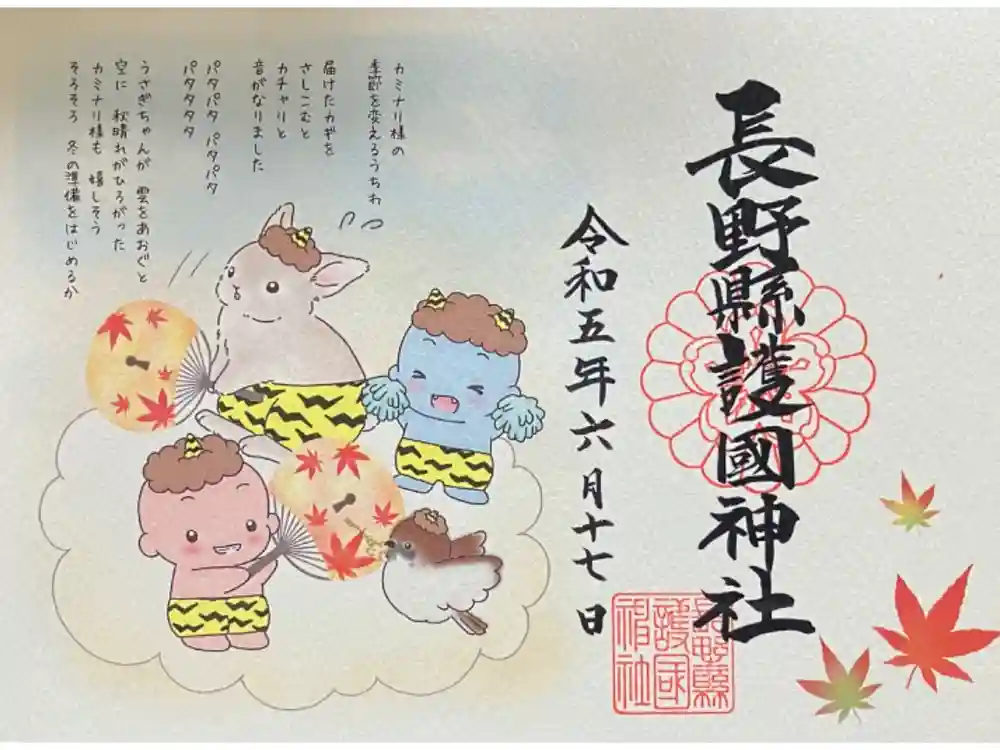 長野縣護國神社
令和五年六月十七日
カミナリ様の
季節を変えるうちわ
届けたカギを
さしこむと
カチャリと
音がなりました
パタパタ パタパタ
パタタタタ
うさぎちゃんが 雲をあおぐと
空に 秋晴れがひろがった
カミナリ様も 嬉しそう
そろそろ 冬の準備をはじめるか
長野縣
護國
神社